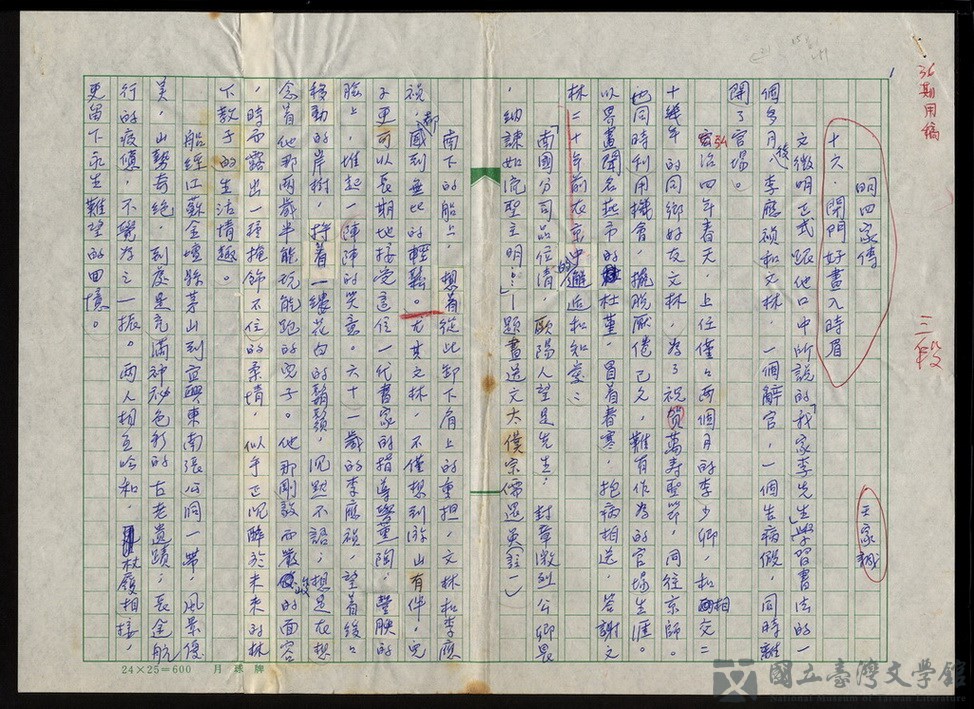 36期用稿
三段
1
明四家傳
王家誠
十六、閉門好畫入時眉
文徵明正式跟他口中所說的「我家李先生」學習書法的一
個多月後,李應禎和文林,一個辭官,一個告病假,同時離
開了官場。
弘治四年春天,上任僅僅兩個月的李少卿,和相交二
十幾年的同鄉好友文林,為了祝賀萬壽聖節,同往京師。
也同時利用機會,擺脫厭倦已久,難有作為的官場生涯。
以界畫聞名燕市的杜堇,冒着春寒,抱病相送,答謝文
林二十年前在京中的邂逅和知愛:
「南國分司品位清,歐陽人望是先生;封章激烈公卿畏
,納諫如流聖主明…」—題畫送文太僕宗儒還吳(註一)
南下的船上,想着從此卸下肩上的重担,文林和李應
禎,都感到無比的輕鬆。尤其文林,不僅想到游山有伴,兒
子更可以長期地接受這位一代書家的指導與薰陶,豐腴的
臉上,堆起一陣陣的笑意。六十一歲的李應禎,望着緩緩
移動的岸樹,捋着一縷花白的鬍鬚,沉默不語;想是在想
念着他那兩歲半能玩能跑的兒子。他那剛毅而嚴峻的面容
,時而露出一種掩飾不住的柔情,似乎正沉醉於未來的林
下教子的生活情趣。
船經江蘇金壇縣茅山到宜興東南張公洞一帶,風景優
美,山勢奇絕,到處是充滿神祕色彩的古老遺蹟;長途航
行的疲憊,不覺為之一振。兩人相互吟和,杖履相接,
更留下永生難忘的回憶。
24×25=600 月球牌
國立臺灣文學館
National Museum of Taiwan Literature